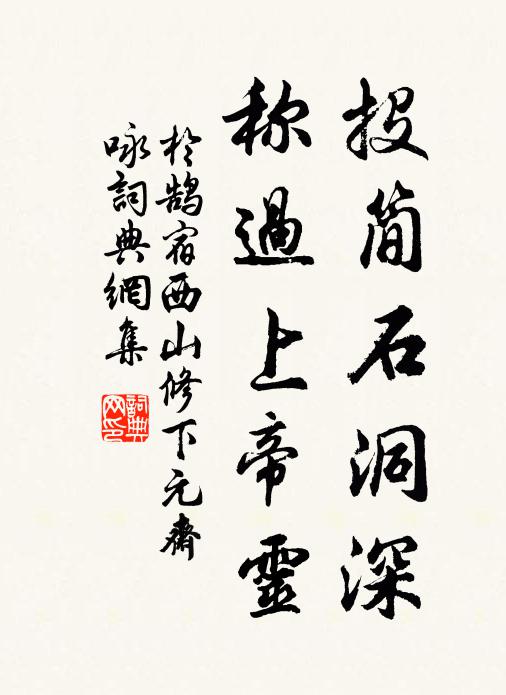 投简石洞深
称過上帝靈
於鵠宿西山修下元齋
咏詞典網集
詞典网印